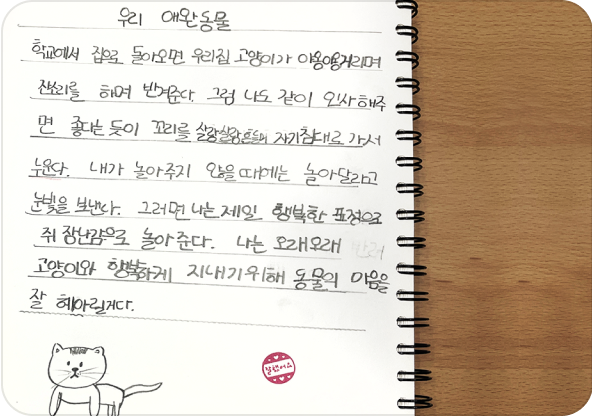 우리 애완동물
학교에서 집으로 돌아오면 우리집 고양이가 야옹야옹거리며
잔소리를 하며 반겨준다. 그럼 나도 같이 인사해주
면 좋다는 듯이 꼬리를 살랑살랑흔들며 자기침대로 가서
누운다. 내가 놀아주지 않을때에는 놀아달라고
눈빛을 보낸다. 그러면 나는 제일 행복한 표정으로
쥐 장난감으로 놀아준다. 나는 오래오래 반려
고양이와 행복하게 지내기위해 동물의 마음을
잘 헤아릴거다.
참잘했어요